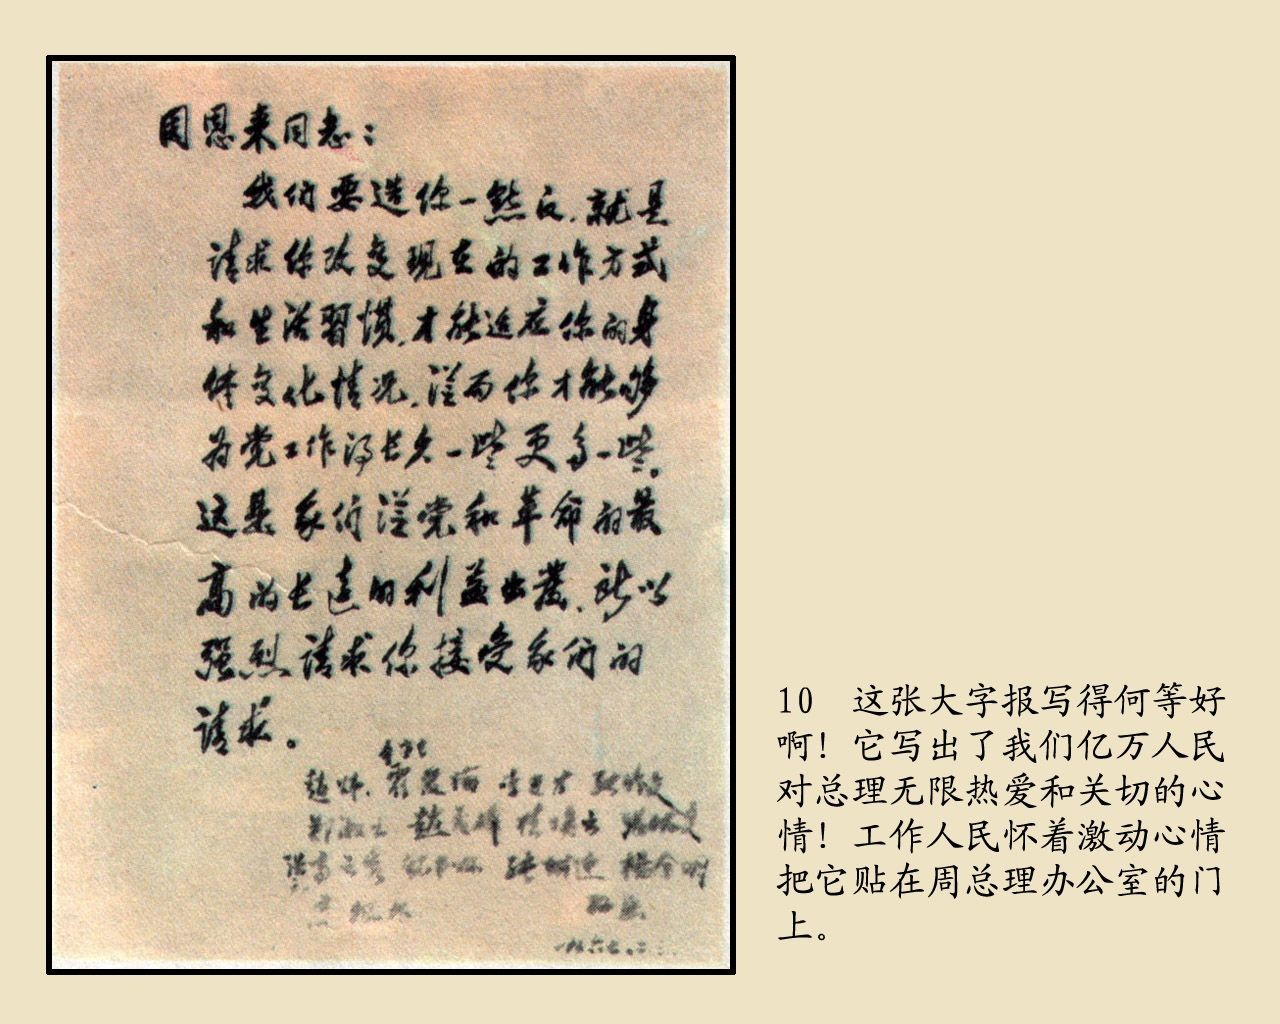 周恩来同志：
我们要造你一点反，就是
请求你改变现在的工作方式
和生活習慣，才能适应你的身
体变化情况，從而你才能够
为党工作得长久一些更多一些。
这是我们從党和革命的最
高的长远的利益出发，所以
强烈请求你接受我们的
请求。
一九六七.二.
10 这张大字报写得何等好
啊！它写出了我们亿万人民
对总理无限热爱和关切的心
情！工作人民怀着激动心情
把它贴在周总理办公室的门
上。